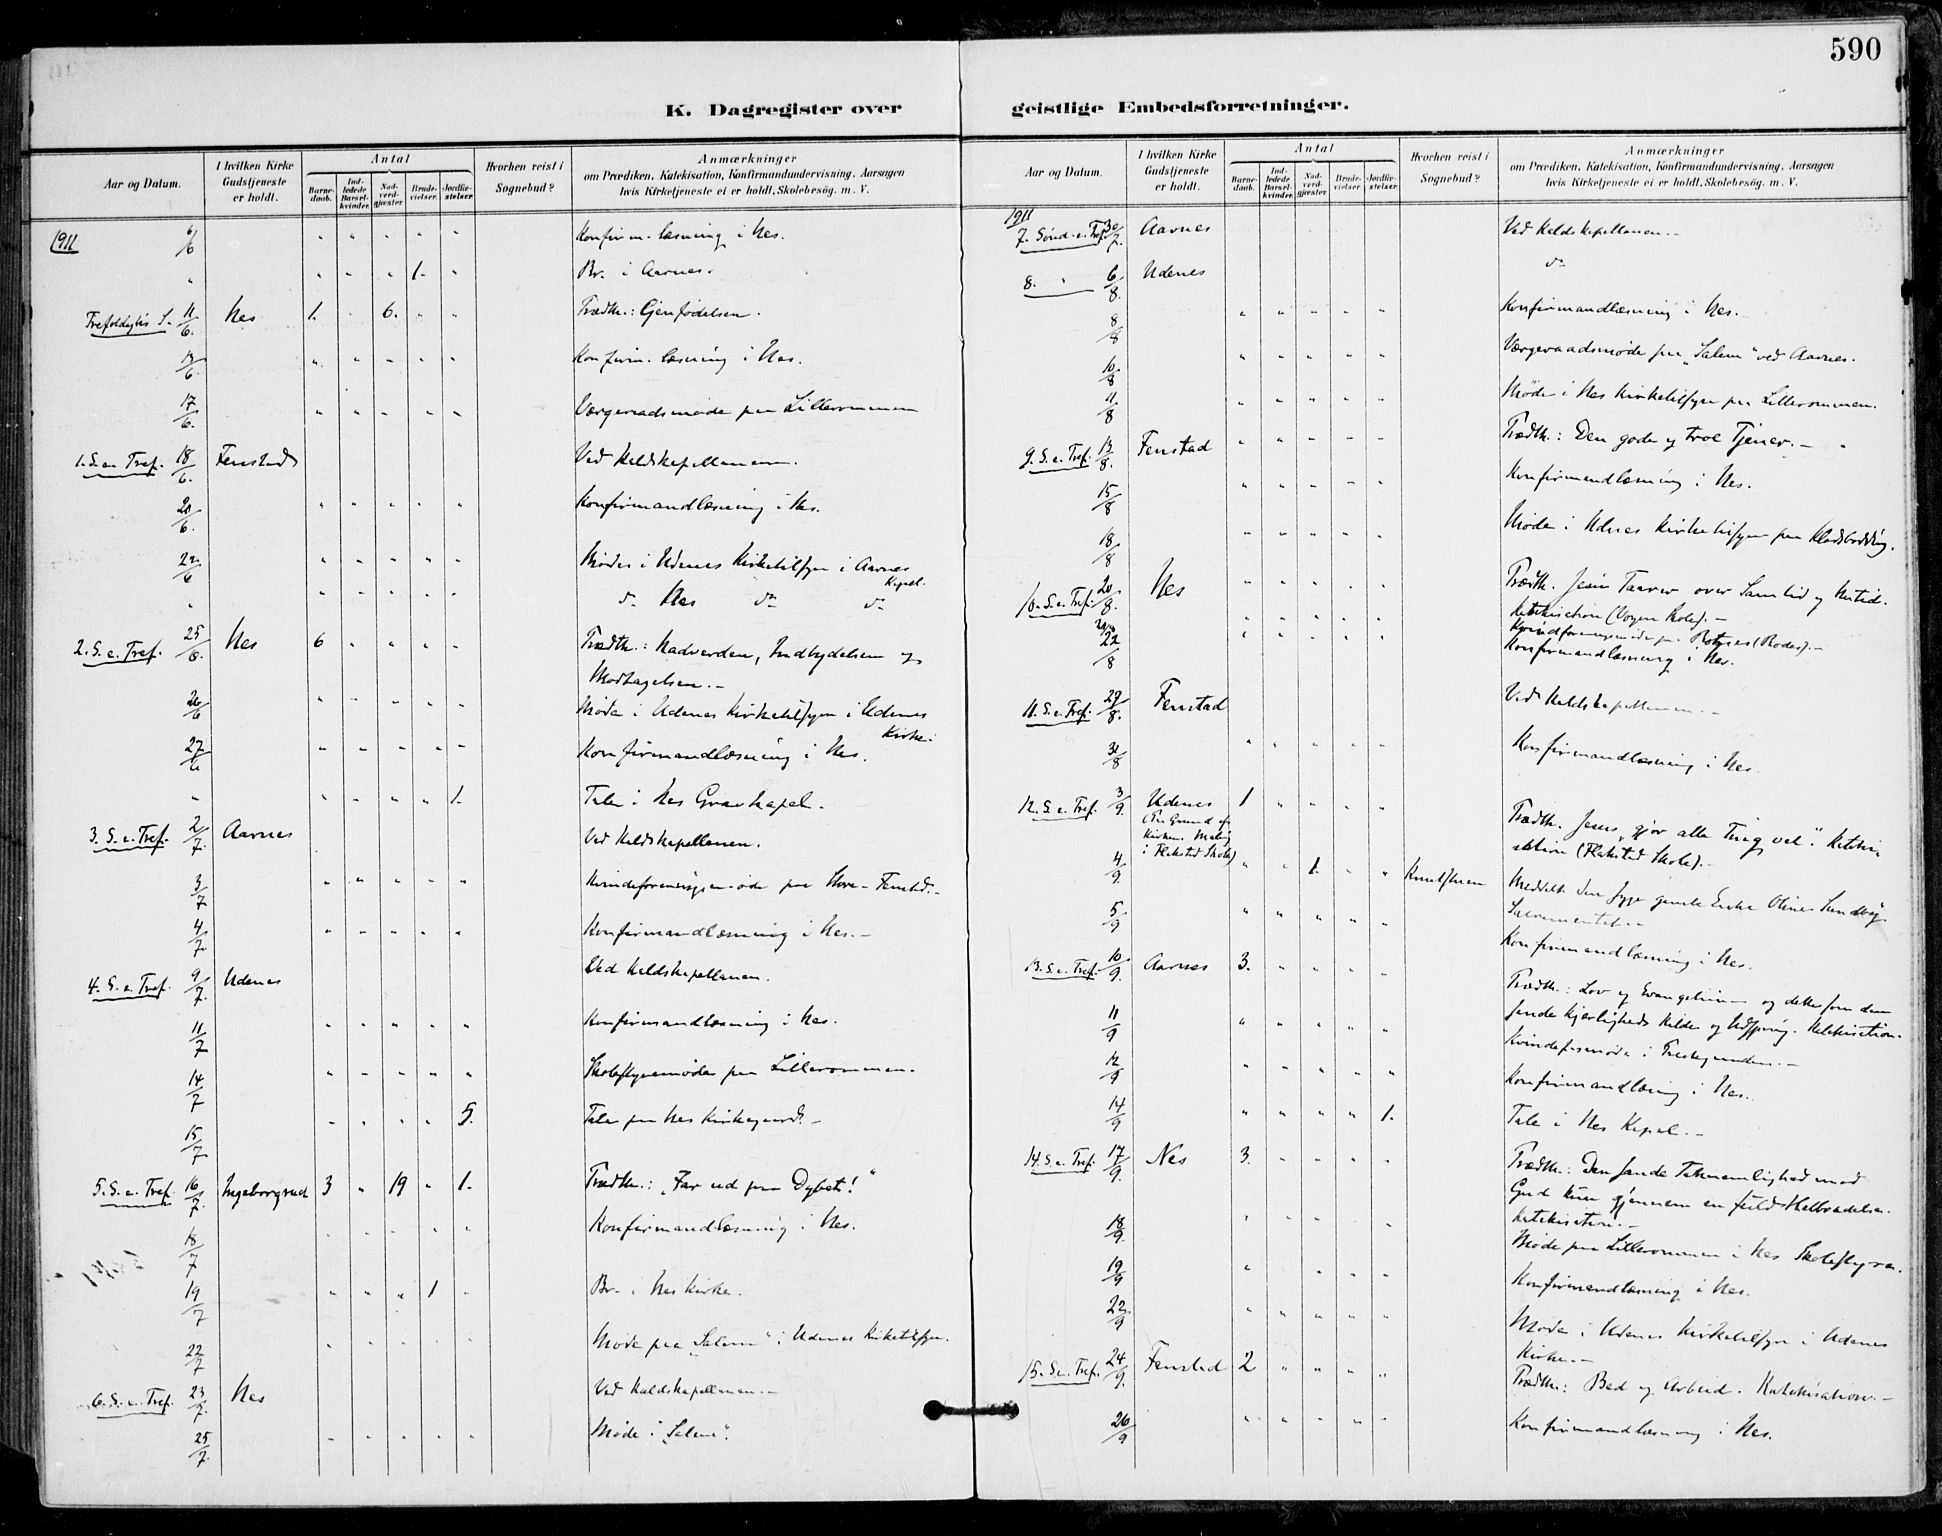 590
K. Dagregister over geistlige Embedsforretninger.
Aar og Datum. I hvilken Kirke Gudstjeneste er holdt. Antal Barnedaab. Indledede Barselkvinder. Nadverdgjæster. Brudevielser. Jordfæstelser. Hvorhen reist i Sognebud? Anmærkninger om Prædiken, Katekisation, Konfirmandundervisning, Aarsagen hvis Kirketjeneste ei er holdt, Skolebesøg. m. V.
1911 6/6 " " " " " Konfirm. læsning i Nes.
" " " " 1. " Br. i Aarnes.
Trefoldighs S. 11/6. Nes 1. " 6. " " Trædth.: Gjenfødelsen.
13/6. " " " " " Konfirm. læsning i Nes.
17/6. " " " " " Værgeraadsmøde paa Lillerommen
1. S. e. Tref. 18/6. Fenstad Ved Kaldskapellanen.
20/6. " " " " " Konfirmandlæsning i Nes.
22/6 " " " " " Møde i Udenes Kirketilsyn i Aarnes
" " " " " " do Nes do do Kapel.
2. S. e. Tref. 25/6. Nes 6 " " " " Trædth.: Nadverden, Indbydelsen og
Modtagelsen.-
26/6 " " " " " Møde i Udenes Kirketilsyn i Udenes
Kirke.
27/6 " " " " " Konfirmandlæsning i Nes.
" " " " " 1. Tale i Nes Gravkapel.
3. S. e. Tref. 2/7. Aarnes Ved Kaldskapellanen.
3/7 " " " " " Kvindeforeningsmøde paa Store-Fenstad.-
4/7. " " " " " Konfirmandlæsning i Nes.-
4. S. e. Tref. 9/7. Udenes Ved Kaldskapellanen.
11/7 " " " " " Konfirmandlæsning i Nes.
14/7 " " " " " Skolestyremøde paa Lillerommen.
15/7 " " " " 5. Tale paa Nes Kirkegaard.-
5. S. e. Tref. 16/7. Ingeborgrud 3 " 19 " 1. Trædth.: "Far ud paa Dybet!"
18/7 " " " " " Konfirmandlæsning i Nes.
19/7 " " " 1 " Br. i Nes Kirke.
22/7 " " " " " Møde paa "Salem" i Udenes Kirketilsyn.
6. S. e. Tref. 23/7. Nes Ved Kaldskapellanen.-
25/7. " " " " " Møde i "Salem".
Aar og Datum. I hvilken Kirke Gudstjeneste er holdt. Antal Barnedaab. Indledede Barselkvinder. Nadverdgjæster. Brudevielser. Jordfæstelser. Hvorhen reist i Sognebud? Anmærkninger om Prædiken, Katekisation, Konfirmandundervisning, Aarsagen hvis Kirketjeneste ei er holdt, Skolebesøg. m. V.
1911
7. Sønd. e. Tref. 30/7. Aarnes Ved Kaldskapellanen.-
8. " 6/8. Udenes do
8/8 " " " " " Konfirmandlæsning i Nes.
10/8 " " " " " Værgeraadsmøde paa "Salem" ved Aarnes.
11/8 " " " " " Møde i Nes Kirketilsyn paa Lillerommen.
9. S. e. Tref. 13/8. Fenstad " " " " " Trædth.: Den gode og troe Tjener.-
15/8 " " " " " Konfirmandlæsning i Nes.
18/8 " " " " " Møde i Udnes Kirketilsyn paa
10. S. e. Tref. 20/8. Nes " " " " " Trædth. Jesu Taarer over Samtid og Nutid.
Katekisation
" " " " " Kvindeforeningsmøde paa
22/8 " " " " " Konfirmandlæsning i Nes.
11. S. e. Tref. 27/8. Fenstad Ved Kaldskapellanen.-
30/8 " " " " " Konfirmandlæsning i Nes.
12. S. e. Tref. 3/9. Udenes 1 " " " " Trædth. Jesus "gjør alle Ting vel". Kateki-
(Paa Grund af Kirkens Maling i Flakstad Skole) sation (Flakstad Skole).-
4/9. " " 1. " " Meddelt den syge gamle Enke Oline Sundby
Sacramentet.-
5/9 " " " " " Konfirmandlæsning i Nes.
13. S. e. Tref. 10/9. Aarnes 3. " " " " Trædth.: Lov og Evangelium og dette som den
sande Kjærligheds Kilde og Udspring. Katekisation.
11/9 " " " " " Kvindefmøde i
12/9 " " " " " Konfirmandlæsning i Nes.
14/9 " " " " 1. Tale i Nes Kapel.-
14. S. e. Tref. 17/9. Nes 3. " " " " Trædth.: Den sande Taknemlighed mod
Gud kun gjennem en fuld Helbredelse.
Katekisation.-
18/9. " " " " " Møde paa Lillerommen i Nes Skolestyre.
19/9 " " " " Konfirmandlæsning i Nes.
22/9 " " " " " Møde i Udenes Kirketilsyn i Udenes
Kirke.-
15. S. e. Tref. 24/9. Fenstad 2 " " " " Trædth.: Bed og Arbeid. Katekisation.-
26/9 " " " " " Konfirmandlæsning i Nes.